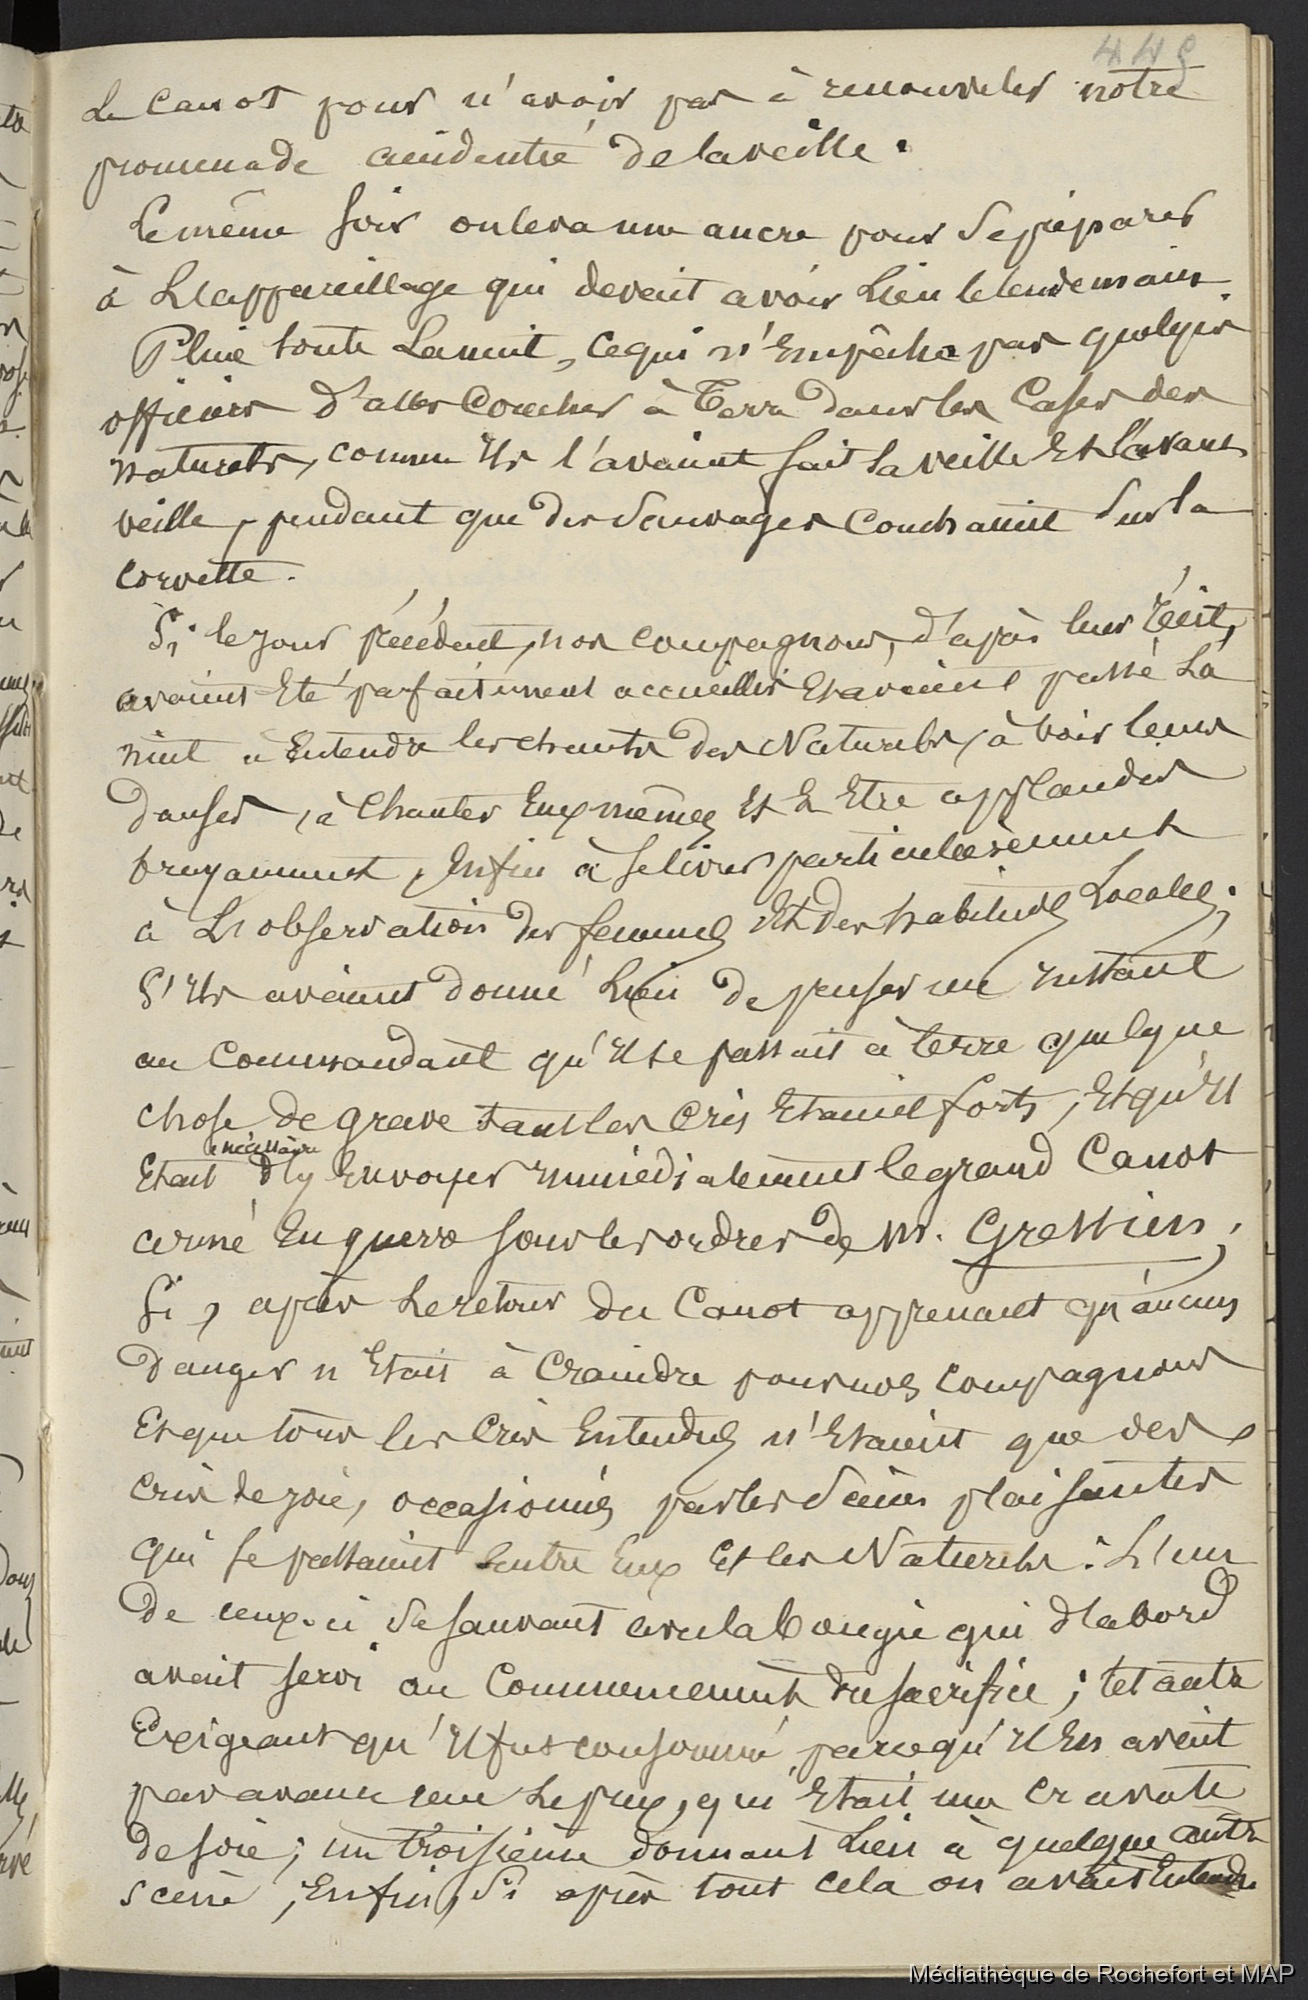 449
Le Canot pour n'avoir pas à renouveler notre
promenade accidentée de la veille.
Le même soir on leva une ancre pour se préparer
à L'appareillage qui devait avoir Lieu le lendemain.
Pluie toute La nuit, ce qui n'Empêcha pas quelques
officiers d'aller Coucher à Terre dans les Cases des
naturels, comme Ils l'avaient fait la veille Et l'avant
veille, pendant que des Sauvages Couchaient Sur la
corvette.
Si le jour précédent, nos compagnons, d'après leur récit,
avaient Eté parfaitement accueillis Et avaient passé La
nuit à Entendre les chants des Naturels, à voir leurs
danses, à Chanter Eux mêmes Et à Etre applaudis
bruyamment, Enfin à se livrer particulièrement
à L'observation des femmes Et des habitudes Locales;
S'Ils avaient donné Lieu de penser un Instant
au Commandant qu'Il se passait à terre quelque
chose de grave tant les Cris Etaient forts, Et qu'Il
nécessaire
Etait d'y Envoyer Immédiatement le grand Canot
armé En guerre sous les ordres de Mr. Gressien;
Si, après Le retour du Canot apprenant qu'aucun
Danger n'Etait à Craindre pour nos compagnons
Et que tous les Cris Entendus n'Etaient que des
Cris de joie, occasionnés par les Scènes plaisantes
qui se passaient Entre Eux Et les Naturels: L'un
de ceux-ci Se sauvant avec la bougie qui d'abord
avait servi au Commencement du sacrifice; tel autre
Exigeant qu'Il fut consommé parcequ'Il En avait
par avance reçu Le prix, qui Etait une cravate
de soie; un troisième donnant Lieu à quelque autre
scène, Enfin, Si après tout cela on avait Entendu
Médiathèque de Rochefort et MAP